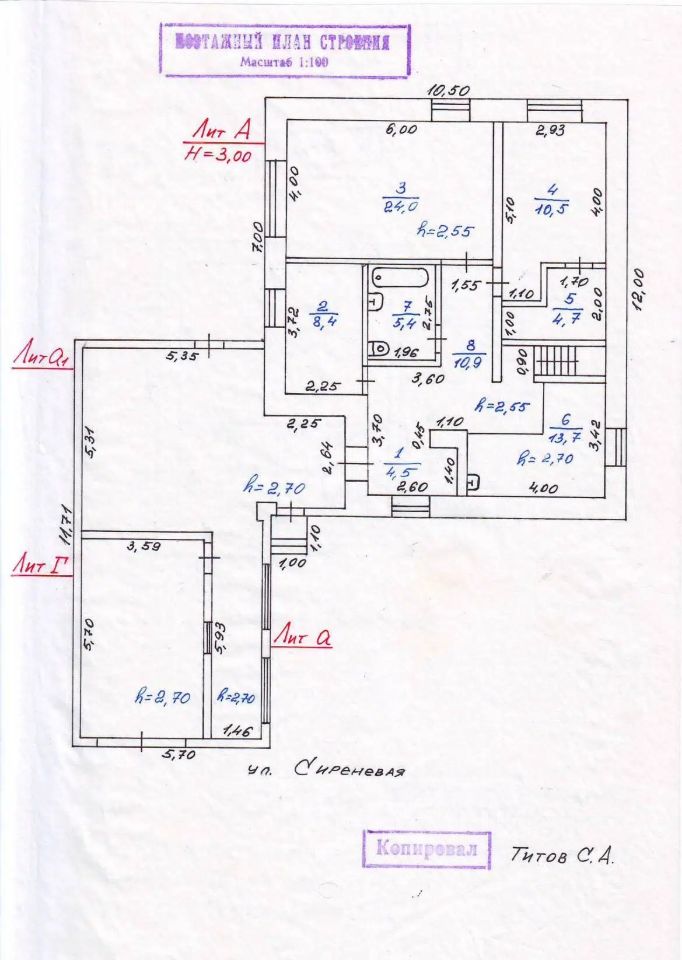 ПОЭТАЖНЫЙ ПЛАН СТРОЕНИЯ
Масштаб 1:100
10,50
Лит А
H=3,00
6,00
2,93
4,00
3
24,0
h=2,55
5,10
4
10,5
4,00
7,00
12,00
1,55
1,10
1,70
5
4,7
2,00
1,00
2
8,4
3,72
7
5,4
2,75
1,96
8
10,9
0,90
Лит а1
5,35
2,25
3,60
h=2,55
5,31
2,25
3,70
0,45
1,10
6
13,7
3,42
h=2,70
2,64
1
4,5
1,40
2,60
4,00
h=2,70
11,71
3,59
1,10
1,00
Лит Г
5,70
5,93
Лит а
h=2,70
h=2,70
1,46
5,70
ул. Сиреневая
Копировал
Титов С.А.